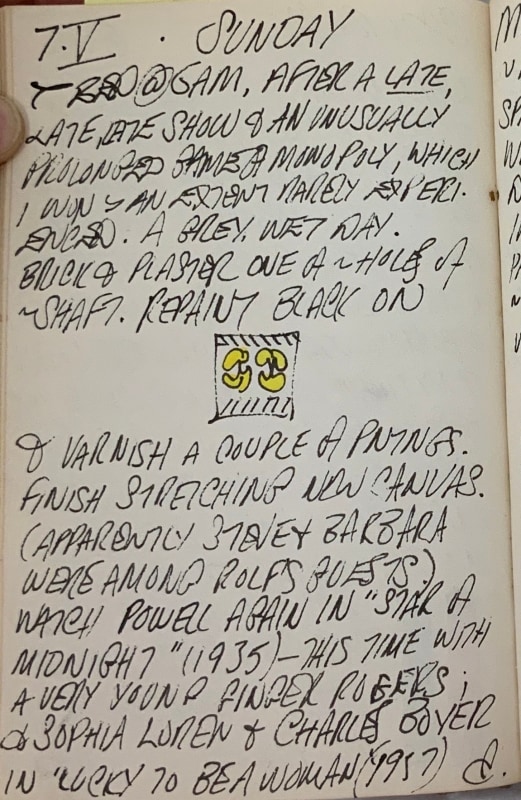 7.V . SUNDAY
BED @ 6AM, AFTER A LATE,
LATE, LATE SHOW & AN UNUSUALLY
PROLONGED GAME OF MONOPOLY, WHICH
I WON AN EXTENT RARELY EXPERI-
ENCED. A GREY, WET DAY.
BRICK & PLASTER ONE OF ~ HOLES OF
~ SHAFT. REPAINT BLACK ON
& VARNISH A COUPLE OF PNTNGS.
FINISH STRETCHING NEW CANVAS.
(APPARENTLY STEVE & BARBARA
WERE AMONG ROLF'S GUESTS.)
WATCH POWELL AGAIN IN "STAR OF
MIDNIGHT" (1935) – THIS TIME WITH
A VERY YOUNG GINGER ROGERS;
& SOPHIA LOREN & CHARLES BOYER
IN "LUCKY TO BE A WOMAN" (1957)